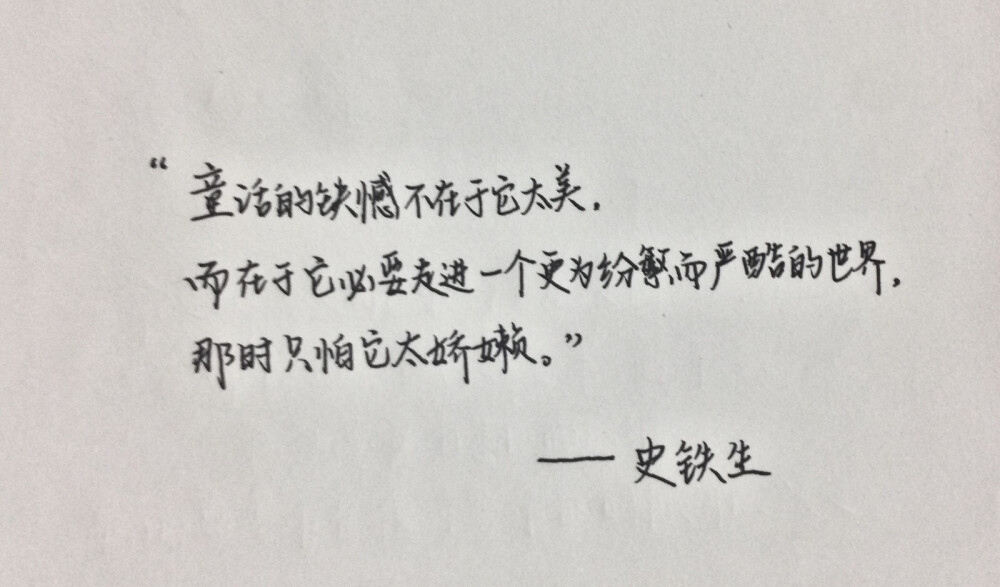 “童话的缺憾不在于它太美,
而在于它必要走进一个更为纷繁而严酷的世界,
那时只怕它太娇嫩。”
—— 史铁生